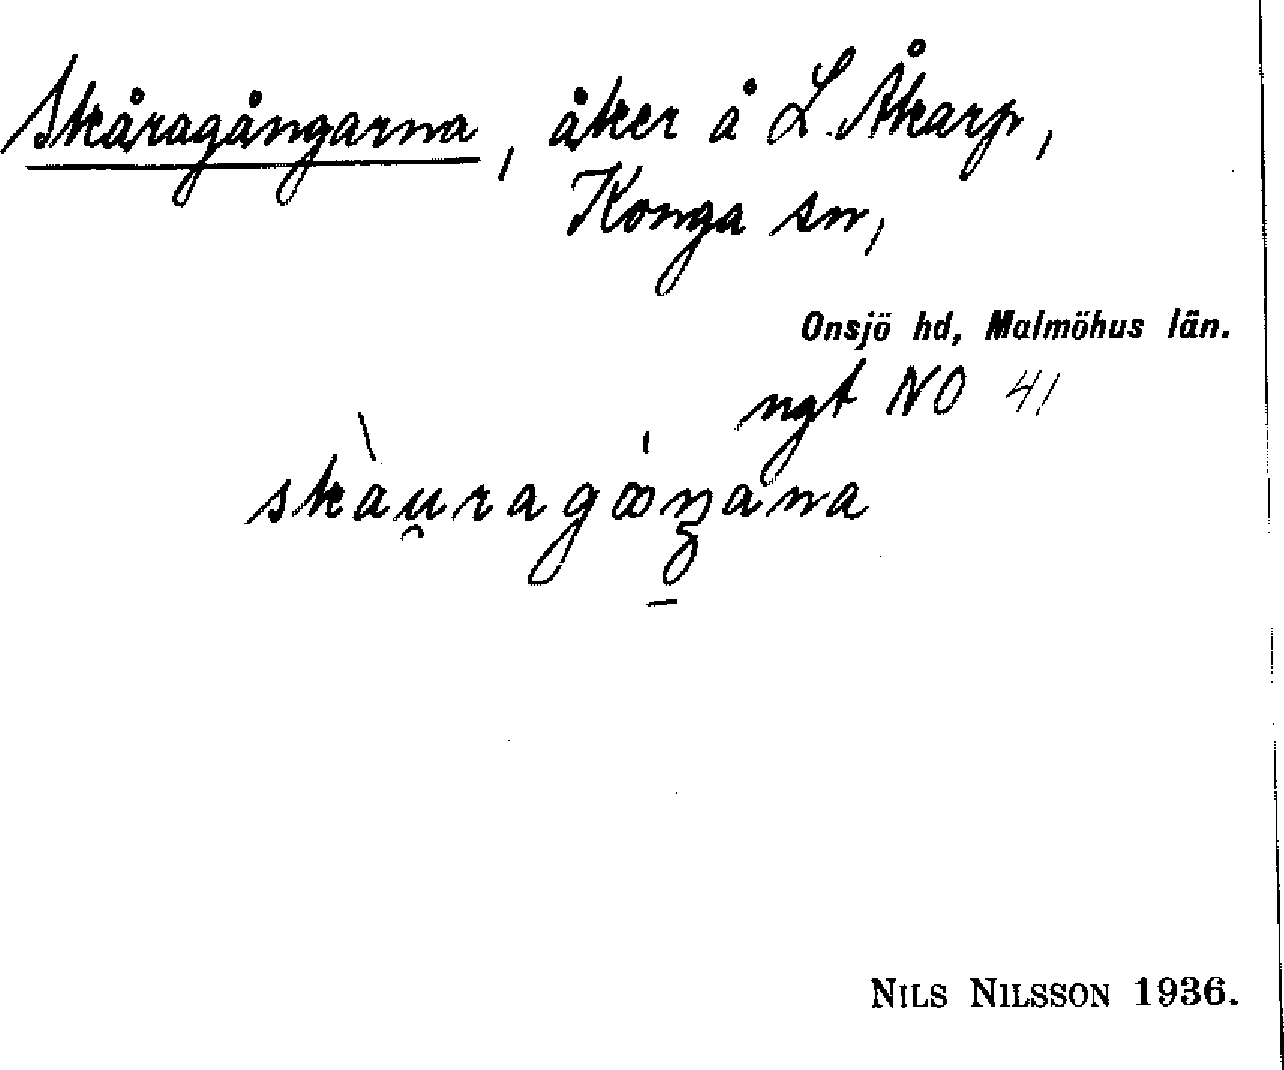 Skåragångarna, åker å L. Åkarp,
Konga sn,
Onsjö hd, Malmöhus län.
ngt NO 41
skàu̯ragꝏŋana
NILS NILSSON 1936.